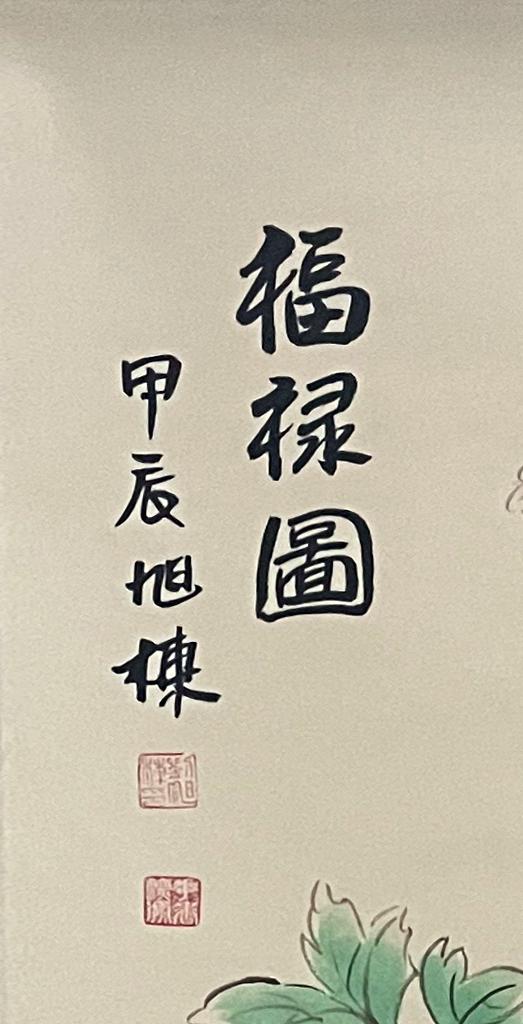 福禄圖
甲辰旭棟